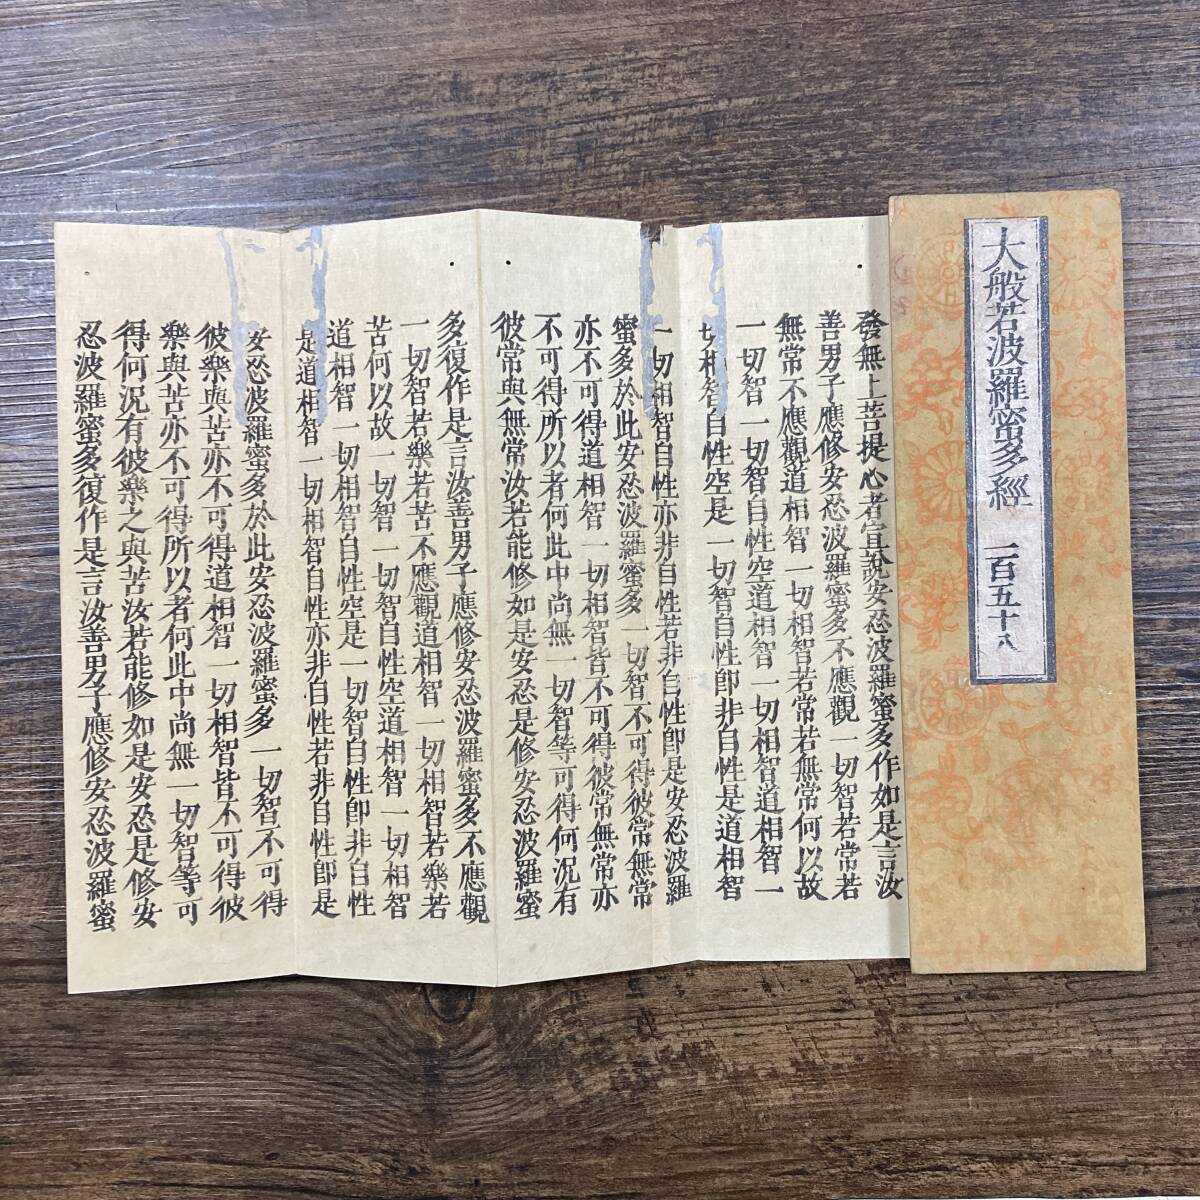 大般若波羅蜜多經 一百五十八
發無上菩提心者宣說安忍波羅蜜多作如是言汝
善男子應修安忍波羅蜜多不應觀一切智若常若
無常不應觀道相智一切相智若常若無常何以故
一切智一切智自性空道相智一切相智道相智一
切相智自性空是一切智自性卽非自性是道相智
一切相智自性亦非自性若非自性卽是安忍波羅
蜜多於此安忍波羅蜜多一切智不可得彼常無常
亦不可得道相智一切相智皆不可得彼常無常亦
不可得所以者何此中尚無一切智等可得何況有
彼常與無常汝若能修如是安忍是修安忍波羅蜜
多復作是言汝善男子應修安忍波羅蜜多不應觀
一切智若樂若苦不應觀道相智一切相智若樂若
苦何以故一切智一切智自性空道相智一切相智
道相智一切相智自性空是一切智自性卽非自性
是道相智一切相智自性亦非自性若非自性卽是
安忍波羅蜜多於此安忍波羅蜜多一切智不可得
彼樂與苦亦不可得道相智一切相智皆不可得彼
樂與苦亦不可得所以者何此中尚無一切智等可
得何況有彼樂之與苦汝若能修如是安忍是修安
忍波羅蜜多復作是言汝善男子應修安忍波羅蜜